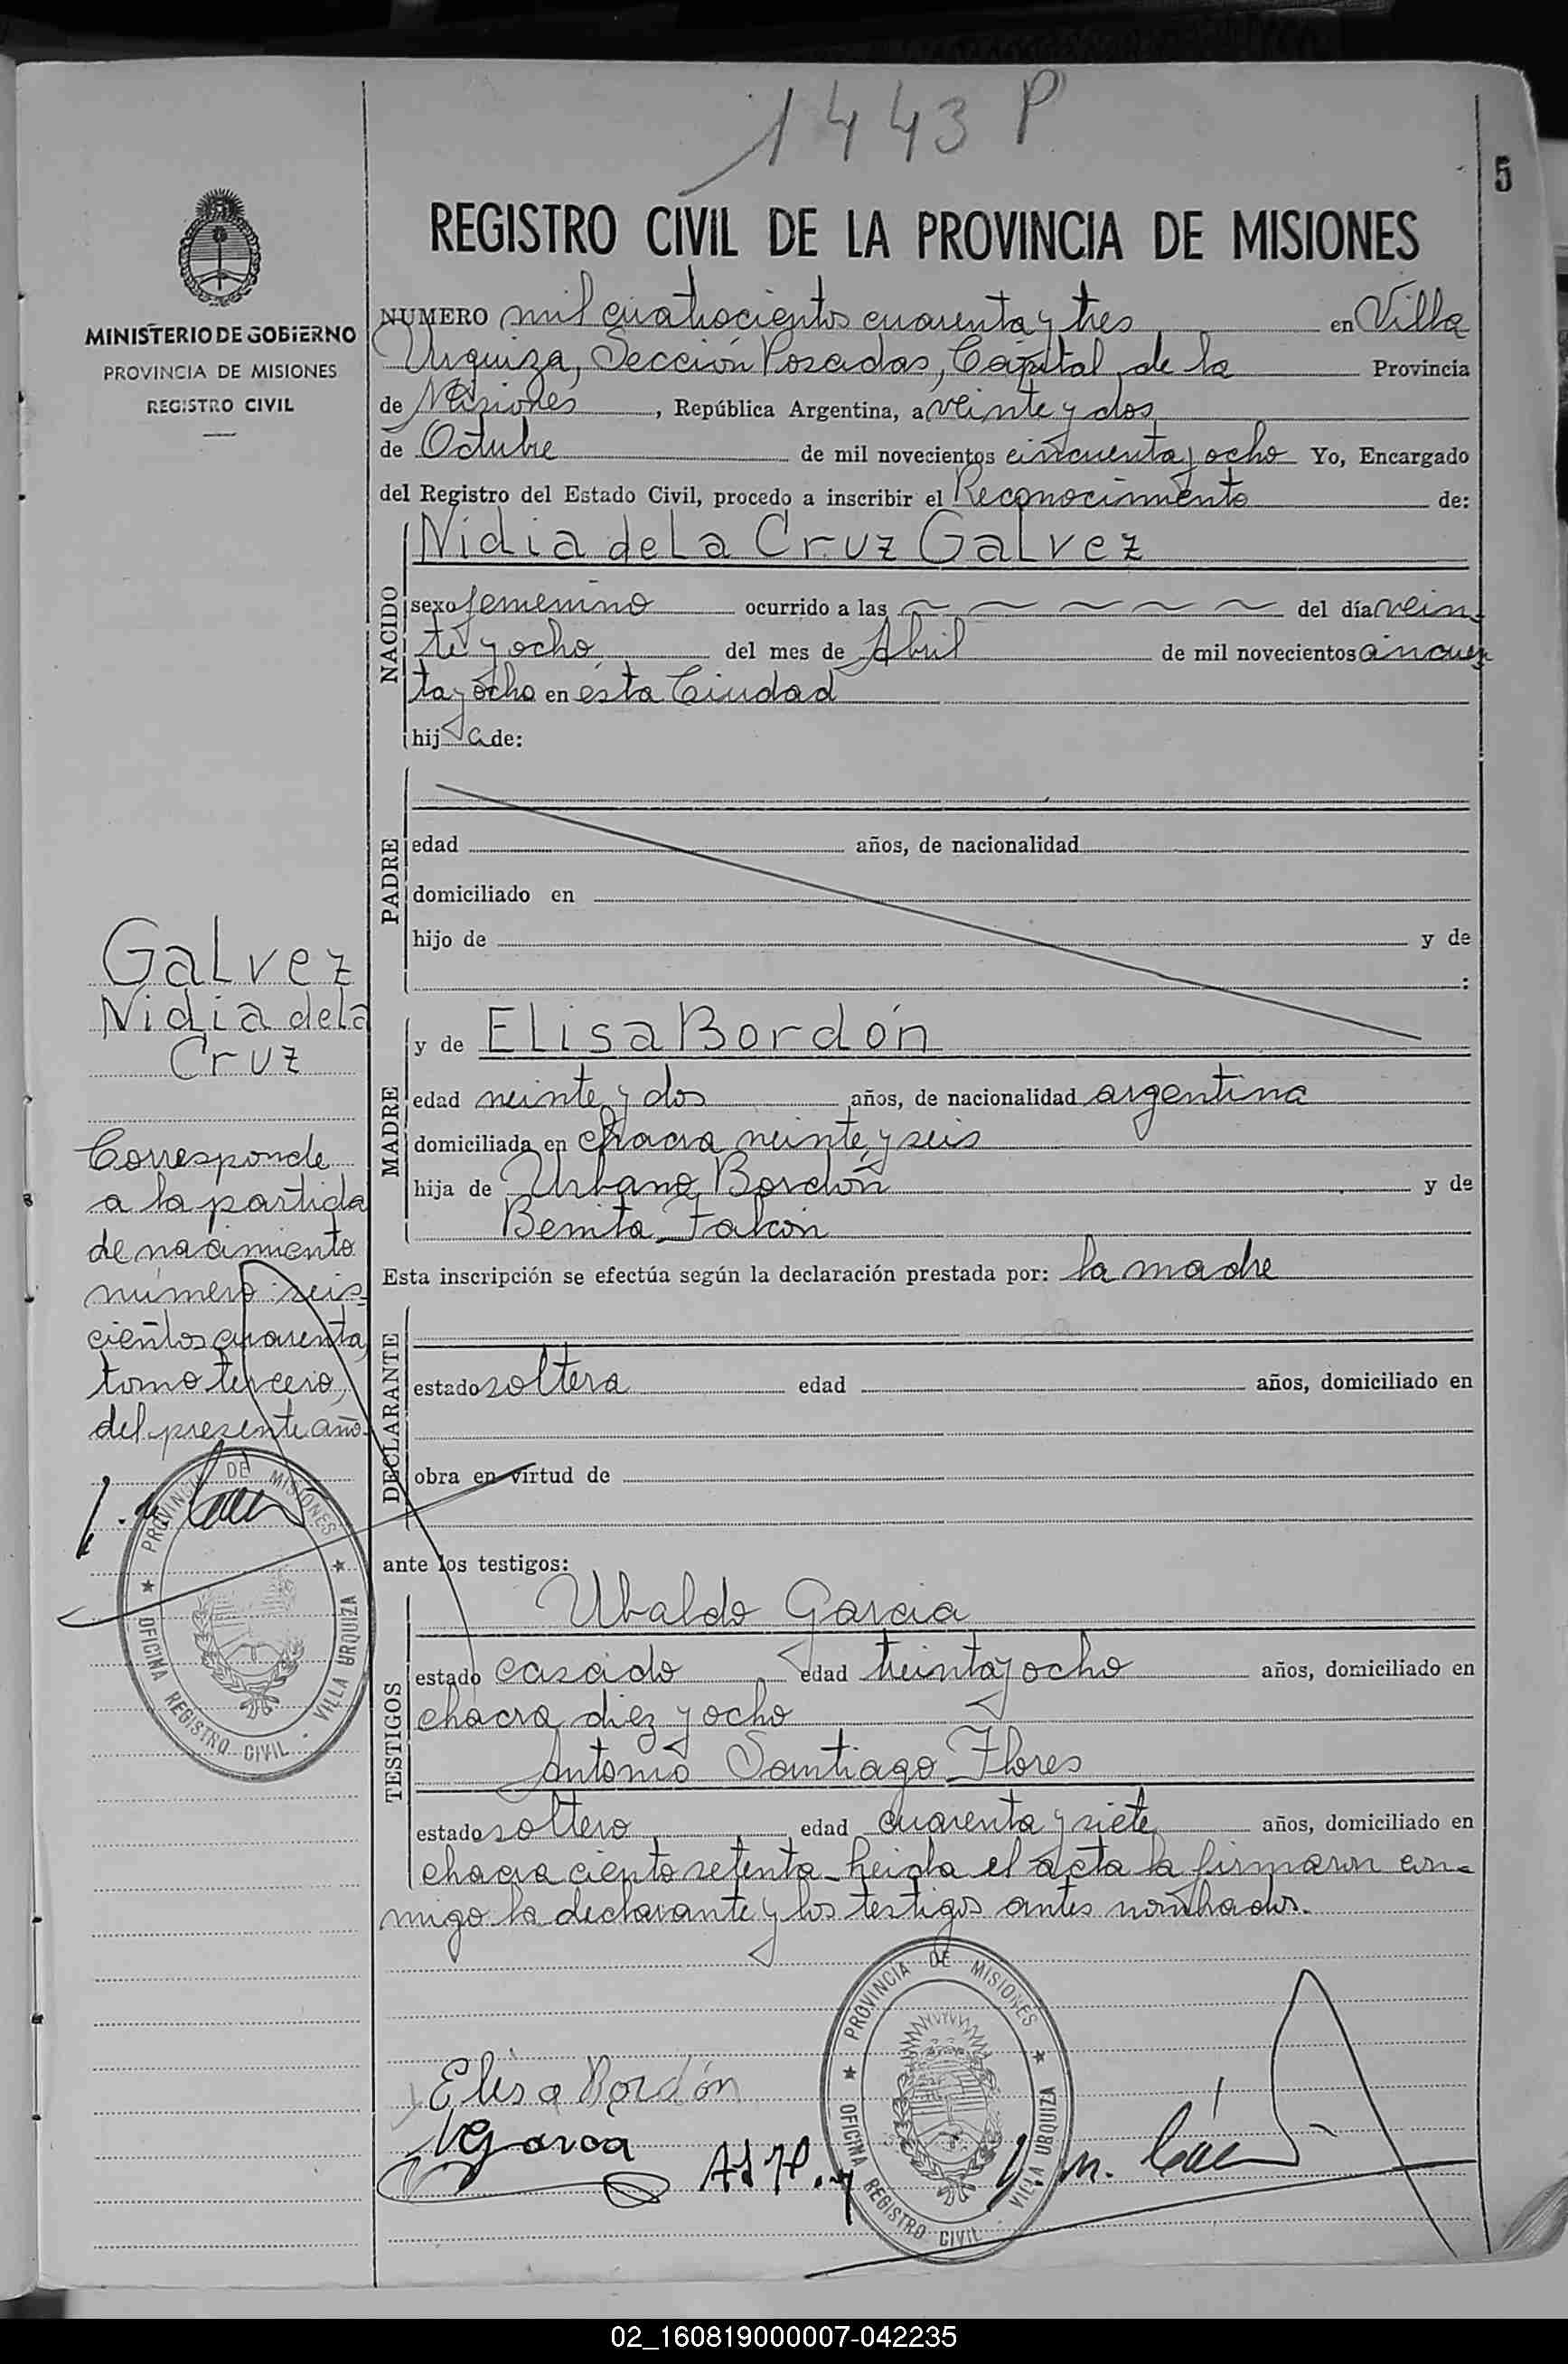 1443 P
5
REGISTRO CIVIL DE LA PROVINCIA DE MISIONES
MINISTERIO DE GOBIERNO
PROVINCIA DE MISIONES
REGISTRO CIVIL
NUMERO mil cuatrocientos cuarenta y tres en Villa
Urquiza, Sección Posadas, Capital de la Provincia
de Misiones, República Argentina, a veinte y dos
de Octubre de mil novecientos cincuenta y ocho Yo, Encargado
del Registro del Estado Civil, procedo a inscribir el Reconocimiento de:
NACIDO
Nidia de La Cruz Galvez
sexo femenino ocurrido a las ~ ~ ~ ~ ~ ~ del día vein-
te y ocho del mes de Abril de mil novecientos cincuen
ta y ocho en esta Ciudad
hija de:
PADRE
edad años, de nacionalidad
domiciliado en
hijo de y de
:
Galvez
Nidia de la
Cruz
MADRE
y de Elisa Bordón
edad veinte y dos años, de nacionalidad argentina
domiciliada en chacra veinte y seis
hija de Urbano Bordón y de
Benita Falcón
Esta inscripción se efectúa según la declaración prestada por: la madre
Corresponde
a la partida
de nacimiento
número seis-
cientos cuarenta,
tomo tercero,
del presente año.
DECLARANTE
estado soltera edad años, domiciliado en
obra en virtud de
PROVINCIA DE MISIONES
OFICINA REGISTRO CIVIL - VILLA URQUIZA
ante los testigos:
TESTIGOS
Ubaldo Garcia
estado casado edad treinta y ocho años, domiciliado en
chacra diez y ocho
Antonio Santiago Flores
estado soltero edad cuarenta y siete años, domiciliado en
chacra ciento setenta - heida el acta la firmaron con-
migo la declarante y los testigos antes nombrados.
PROVINCIA DE MISIONES
OFICINA REGISTRO CIVIL - VILLA URQUIZA
Elisa Bordón
Garcia
02_160819000007-042235